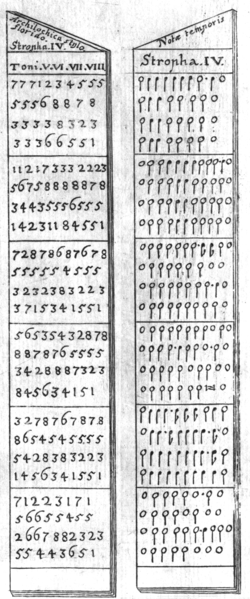 Archilochica stylo
florido.
Stropha. IV.
Toni. V. VI. VII. VIII
7 7 7 1 2 3 4 5 5 5
5 5 5 6 8 8 7 8
3 3 3 3 8 3 2 3
3 3 3 6 6 5 5 1
1 1 2 1 7 3 3 3 2 2 2 3
5 6 7 5 8 8 8 8 8 7 8
3 4 4 3 5 5 5 6 5 5 5
1 4 2 3 1 1 8 4 5 5 1
7 2 8 7 8 6 8 7 6 7 8
5 5 5 5 5 4 5 5 5
3 2 3 2 3 8 3 2 2 3
3 7 1 5 3 4 1 5 5 1
5 6 5 3 5 4 3 2 8 7 8
8 8 7 8 7 6 5 5 5 5
3 4 2 8 8 8 7 3 2 3
8 4 5 6 3 4 1 5 1
3 2 7 8 7 6 7 8 7 8
8 6 5 4 5 4 5 5 5 5
5 4 2 8 3 8 3 2 2 3
1 4 5 6 3 4 1 5 5 1
7 1 2 2 3 1 7 1
5 6 6 5 5 4 5 5
2 6 6 7 8 8 2 3 2 3
5 5 4 4 3 6 5 1
Notæ temporis
Stropha. IV.